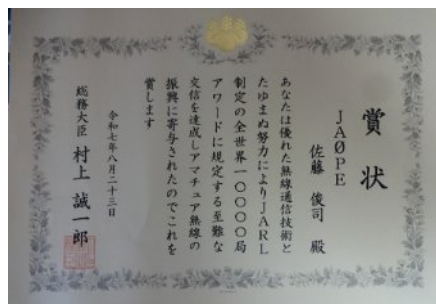 賞状
JAØPE
佐藤俊司殿
あなたは優れた無線通信技術と
たゆまぬ努力によりJARL
制定の全世界一〇〇〇〇局
アワードに規定する至難な
交信を達成しアマチュア無線の
振興に寄与されたのでこれを
賞します
令和七年八月二十三日
総務大臣 村上誠一郎